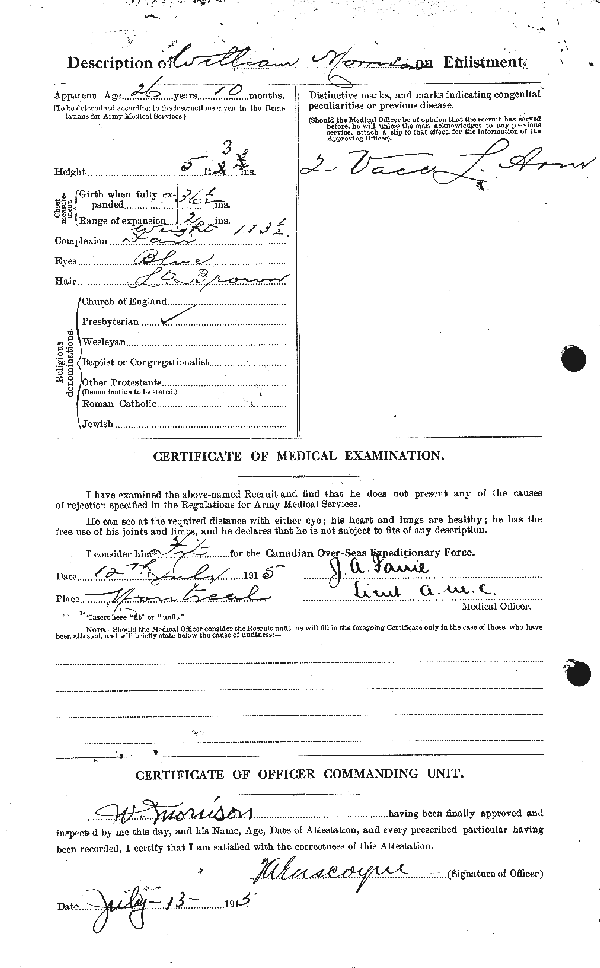 Description of William Morrison on Enlistment.
Apparent Age 26 years 10 months.
(To be determined according to the instructions given in the Regulations for Army Medical Services.)
Height 5 ft. 3 ins.
Chest measurement
Girth when fully expanded 36 ½ ins.
Range of expansion 2 ins.
Weight 113 ½
Complexion Fair
Eyes Blue
Hair Lt Brown
Religious denominations.
Church of England
Presbyterian ✓
Wesleyan
Baptist or Congregationalist
Other Protestants
(Denomination to be stated.)
Roman Catholic
Jewish
Distinctive marks, and marks indicating congenital
peculiarities or previous disease.
(Should the Medical Officer be of opinion that the recruit has served
before, he will, unless the man acknowledges to any previous
service, attach a slip to that effect, for the information of the
Approving Officer).
2 Vacc L. Arm
CERTIFICATE OF MEDICAL EXAMINATION.
I have examined the above-named Recruit and find that he does not present any of the causes
of rejection specified in the Regulations for Army Medical Services.
He can see at the required distance with either eye; his heart and lungs are healthy; he has the
free use of his joints and limbs, and he declares that he is not subject to fits of any description.
I consider him* fit for the Canadian Over-Seas Expeditionary Force.
Date 12th July 1915
J. A.
Place Montreal
Lieut A.M.C.
Medical Officer.
*Insert here "fit" or "unfit."
NOTE. Should the Medical Officer consider the Recruit unfit, he will fill in the foregoing Certificate only in the case of those who have
been attested, and will briefly state below the cause of unfitness:—
CERTIFICATE OF OFFICER COMMANDING UNIT.
W. Morrison having been finally approved and
inspected by me this day, and his Name, Age, Date of Attestation, and every prescribed particular having
been recorded, I certify that I am satisfied with the correctness of this Attestation.
(Signature of Officer)
Date July 13 1915